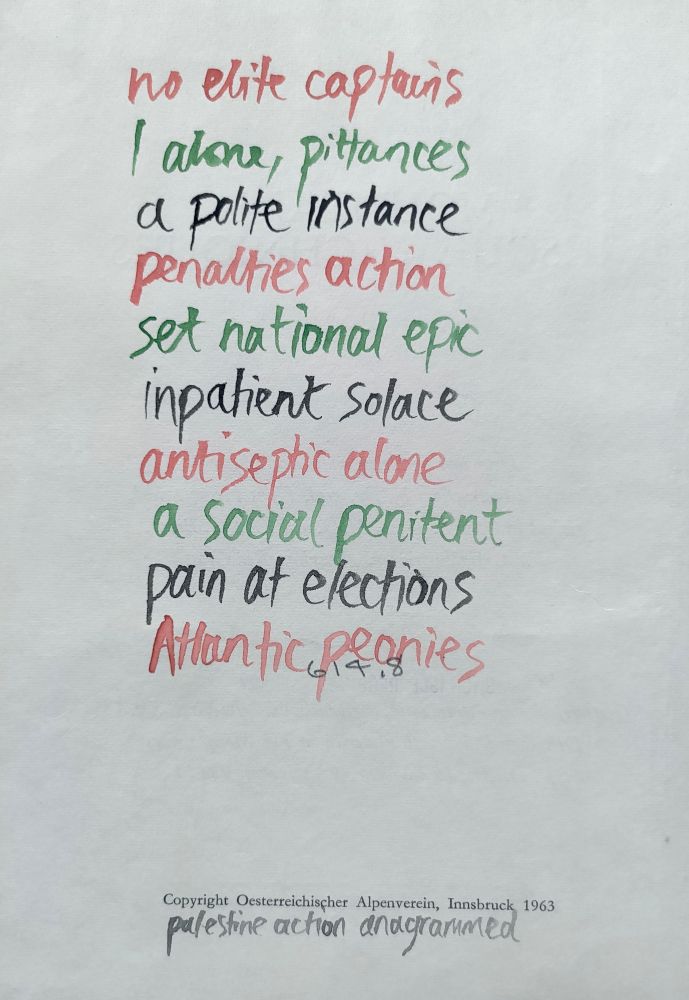 no elite captains
I alone, pittances
a polite instance
penalties action
set national epic
inpatient solace
antiseptic alone
a social penitent
pain at elections
Atlantic peonies
614.8
Copyright Oesterreichischer Alpenverein, Innsbruck 1963
palestine action anagrammed